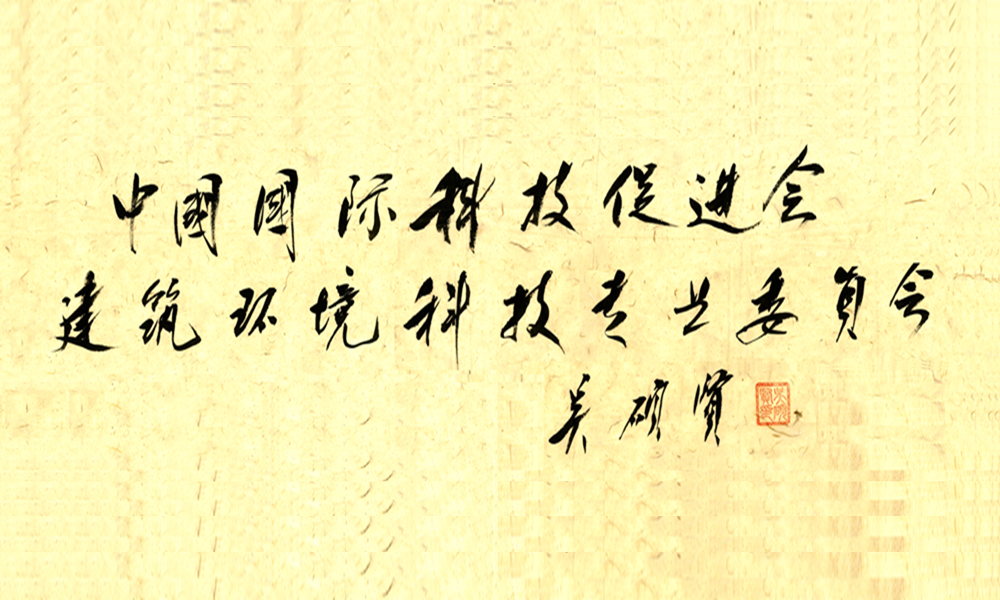 中國國际科技促进会
建筑环境科技专业委员会
吴硕贤